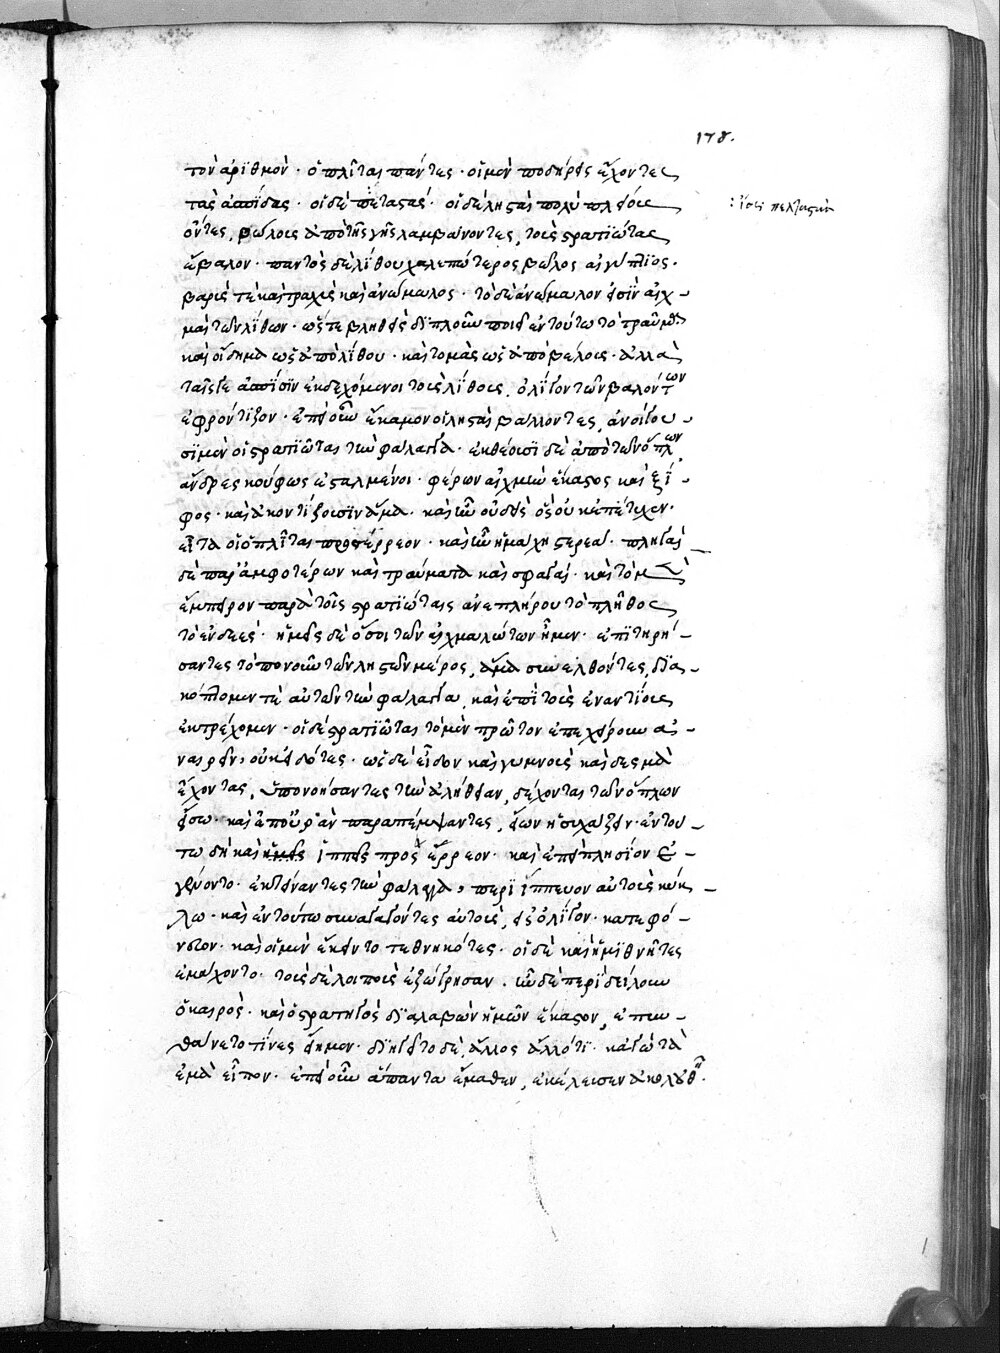 178.
τὸν ἀριθμὸν · ὁπλῖται πάντες · οἱ μὲν ποδήρεις ἔχοντες
τὰς ἀσπίδας · οἱ δὲ πεταστάς · οἱ δὲ λησταὶ πολὺ πλείους
: ἴσως πελταστὰς
ὄντες, βώλοις ἀπὸ τῆς γῆς λαμβάνοντες, τοὺς στρατιώτας
ἔβαλον · παντὸς δὲ λίθου χαλεπώτερος βῶλος αἰγύπτιος ·
βαρύς τε καὶ τραχὺς καὶ ἀνώμαλος · τὸ δὲ ἀνώμαλον εἰσὶν αἰχ-
μαὶ τῶν λίθων · ὥστε βληθεὶς διπλοῦν ποιεῖ ἐν τούτῳ τὸ τραῦμα
καὶ οἴδημα ὡς ἀπὸ λίθου · καὶ τομὰς ὡς ἀπὸ βέλους · ἀλλὰ
ταῖς γε ἀσπίσιν ἐκδεχόμενοι τοὺς λίθους, ὀλίγον τῶν βαλόντων
ἐφρόντιζον · ἐπεὶ οὖν ἔκαμον οἱ λησταὶ βάλλοντες, ἀνοίγου-
σι μὲν οἱ στρατιῶται τὴν φάλαγγα · ἐκθέουσι δὲ ἀπὸ τῶν ὅπλων
ἄνδρες κούφως ἐσταλμένοι · φέρων αἰχμὴν ἕκαστος καὶ ξί-
φος · καὶ ἀκοντίζουσιν ἅμα · καὶ ἦν οὐδεὶς ὃς οὐκ ἐπέτυχεν ·
εἶτα οἱ ὁπλῖται προσέρρεον · καὶ ἦν ἡ μάχη στερεά · πληγαὶ
δὲ παρ' ἀμφοτέρων καὶ τραύματα καὶ σφαγαί · καὶ τὸ μὲν
ἔμπειρον παρὰ τοῖς στρατιώταις ἀνεπλήρου τὸ πλῆθος
τὸ ἐνδεές · ἡμεῖς δὲ ὅσοι τῶν αἰχμαλώτων ἦμεν · ἐπιτηρή-
σαντες τὸ πονοῦν τῶν λῃστῶν μέρος, ἅμα συνελθόντες, δια-
κόπτομέν τε αὐτῶν τὴν φάλαγγα, καὶ ἐπὶ τοὺς ἐναντίους
ἐκτρέχομεν · οἱ δὲ στρατιῶται τὸ μὲν πρῶτον ἐπεχείρουν ἀ-
ναιρεῖν, οὐκ εἰδότες · ὡς δὲ εἶδον καὶ γυμνοὺς καὶ δεσμὰ
ἔχοντας, ὑπονοήσαντες τὴν ἀλήθειαν, δέχονται τῶν ὅπλων
εἴσω · καὶ ἐπ' οὐρὰν παραπέμψαντες, εἴων ἡσυχάζειν · ἐν τού-
τῳ δὴ καὶ ἡμεῖς ἱππεῖς προσέρρεον · καὶ ἐπεὶ πλησίον ἐ-
γένοντο · ἐκτείναντες τὴν φάλαγγα, περιΐππευον αὐτοὺς κύκ-
λῳ · καὶ ἐν τούτῳ συναγαγόντες αὐτοὺς, εἰς ὀλίγον · κατεφό-
νευον · καὶ οἱ μὲν ἔκειντο τεθνηκότες · οἱ δὲ καὶ ἡμιθνῆτες
ἐμάχοντο · τοὺς δὲ λοιποὺς ἐζώγρησαν · ἦν δὲ περὶ δείλην
ὁ καιρός · καὶ ὁ στρατηγὸς διαλαβὼν ἡμῶν ἕκαστον, ἐπυν-
θάνετο τίνες εἴημεν · διηγεῖτο δὲ, ἄλλος ἄλλό τι · κἀγὼ τὰ
ἐμὰ εἶπον · ἐπεὶ οὖν ἅπαντα ἔμαθεν, ἐκέλευσεν ἀκολουθεῖν ·